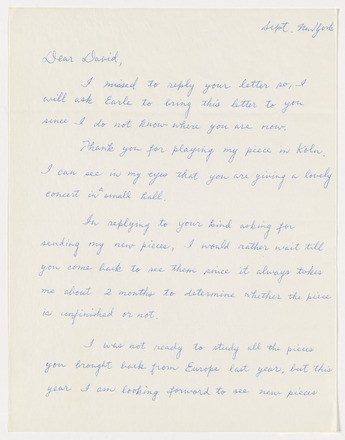 Sept. New York
Dear David,
I missed to reply your letter so, I
will ask Earle to bring this letter to you
since I do not know where you are now.
Thank you for playing my piece in Köln.
I can see in my eyes that you are giving a lovely
concert in a small hall.
In replying to your kind asking for
sending my new pieces, I would rather wait till
you come back to see them since it always takes
me about 2 months to determine whether the piece
is unfinished or not.
I was not ready to study all the pieces
you brought back from Europe last year, but this
year I am looking forward to see new pieces